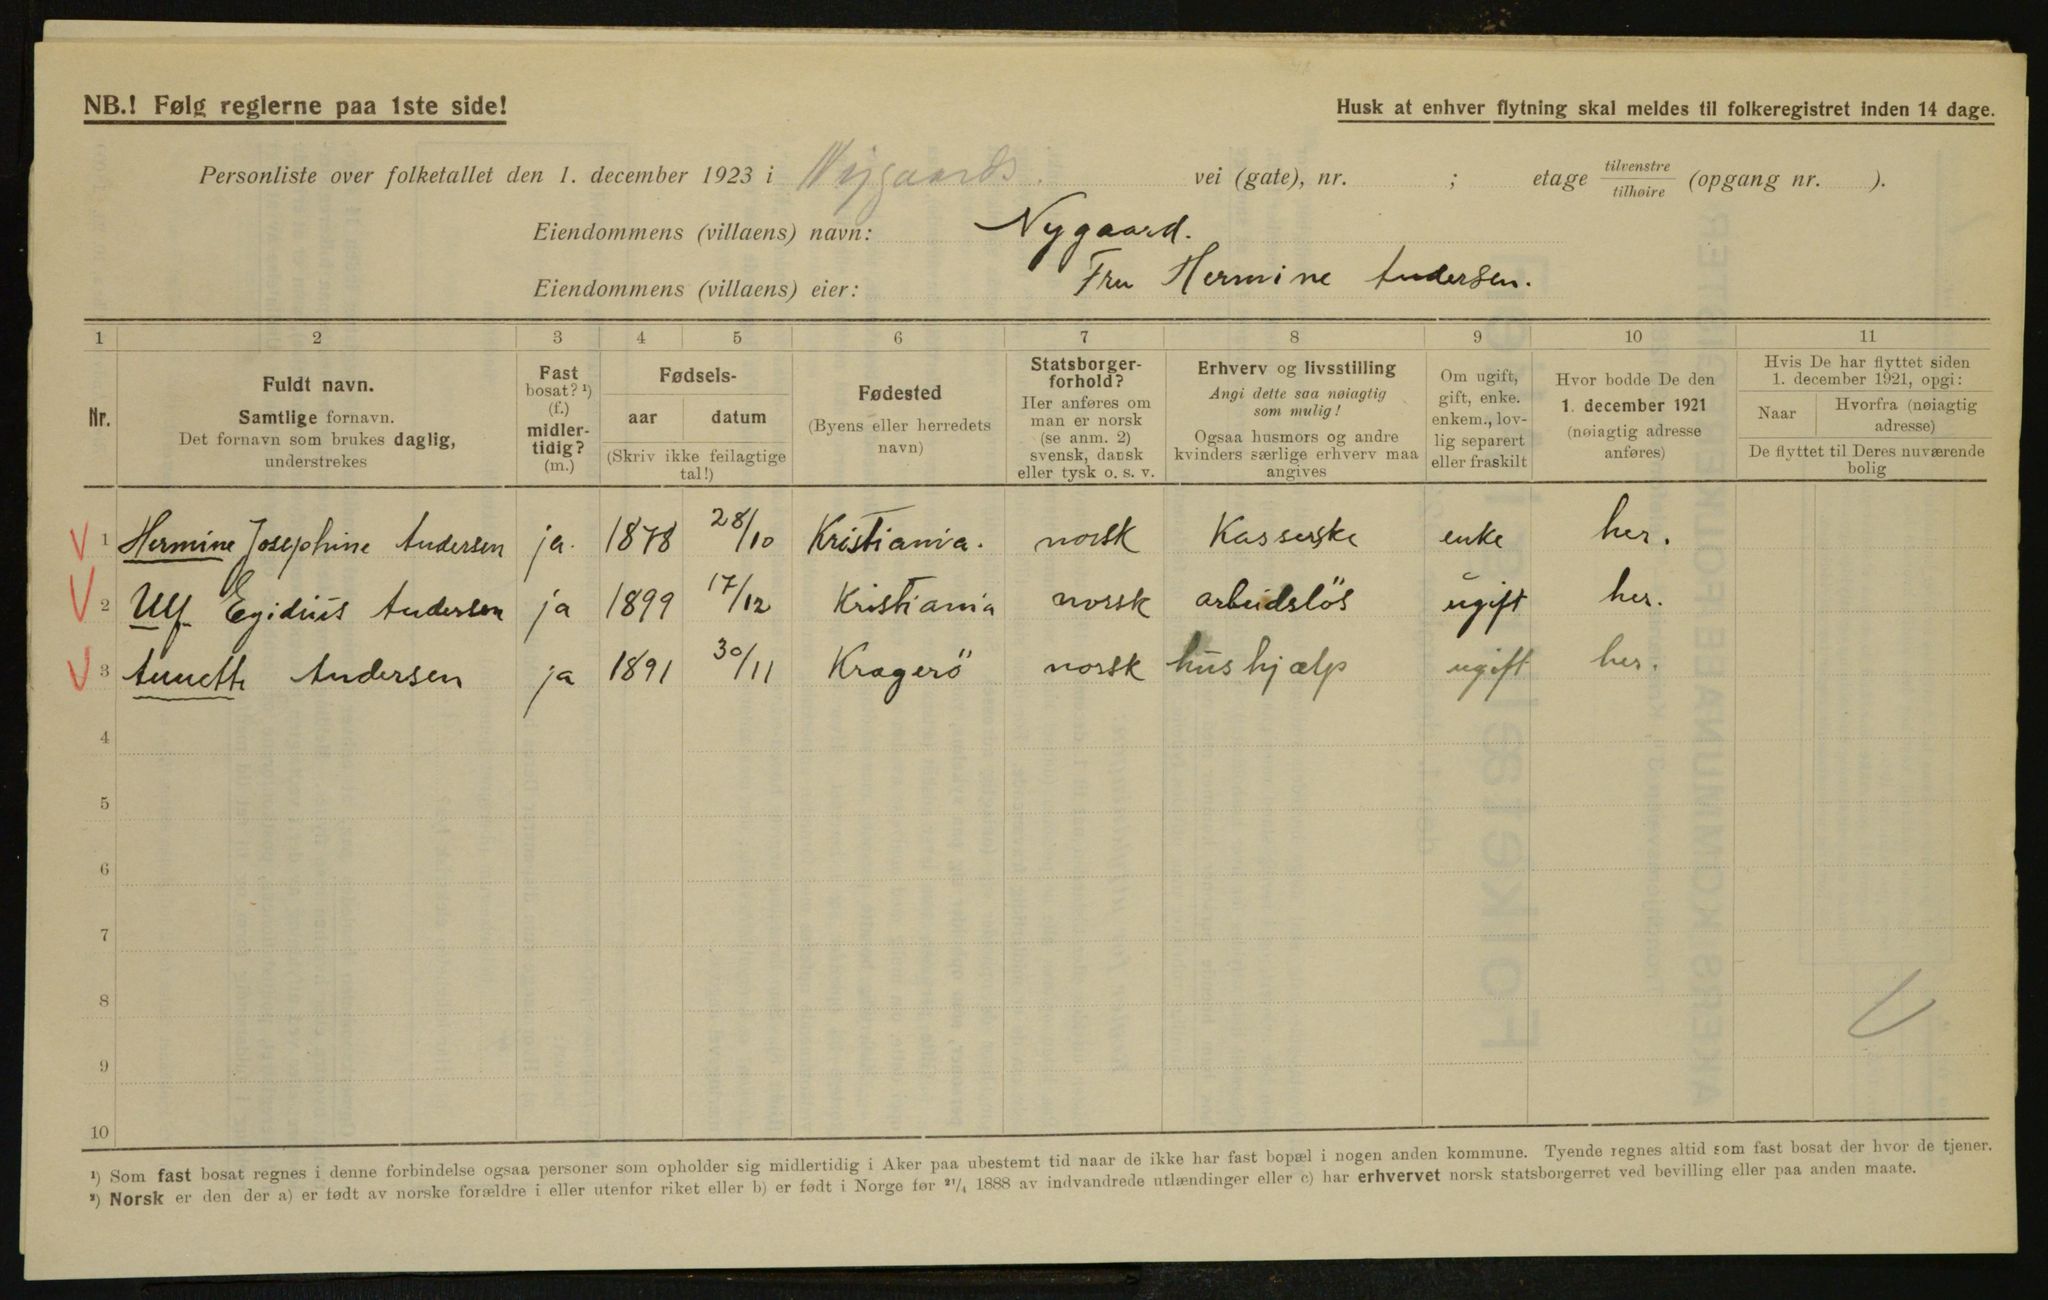 NB.! Følg reglerne paa 1ste side!
Husk at enhver flytning skal meldes til folkeregistret inden 14 dage.
Personliste over folketallet den 1. december 1923 i Nygaards. vei (gate), nr. ; etage tilvenstre tilhøire (opgang nr. ).
Eiendommens (villaens) navn: Nygaard.
Eiendommens (villaens) eier: Fru Hermine Andersen.
1 2 3 4 5 6 7 8 9 10 11
Nr.
Fuldt navn.
Samtlige fornavn.
Det fornavn som brukes daglig,
understrekes
Fast
bosat? ¹)
(f.)
midler-
tidig?
(m.)
Fødsels-
aar datum
(Skriv ikke feilagtige
tal!)
Fødested
(Byens eller herredets
navn)
Statsborger-
forhold?
Her anføres om
man er norsk
(se anm. 2)
svensk, dansk
eller tysk o. s. v.
Erhverv og livsstilling
Angi dette saa nøiagtig
som mulig!
Ogsaa husmors og andre
kvinders særlige erhverv maa
angives
Om ugift,
gift, enke.
enkem., lov-
lig separert
eller fraskilt
Hvor bodde De den
1. december 1921
(nøiagtig adresse
anføres)
Hvis De har flyttet siden
1. december 1921, opgi:
Naar Hvorfra (nøiagtig
adresse)
De flyttet til Deres nuværende
bolig
1 Hermine Josephine Andersen ja. 1878 28/10 Kristiania. norsk Kasserske enke her.
2 Ulf Egidius Andersen ja 1899 17/12 Kristiania norsk arbeidslös ugift her.
3 Annette Andersen ja 1891 30/11 Kragerö norsk hushjælp ugift her.
4
5
6
7
8
9
10
¹) Som fast bosat regnes i denne forbindelse ogsaa personer som opholder sig midlertidig i Aker paa ubestemt tid naar de ikke har fast bopæl i nogen anden kommune. Tyende regnes altid som fast bosat der hvor de tjener.
²) Norsk er den der a) er født av norske forældre i eller utenfor riket eller b) er født i Norge før ²¹/₄ 1888 av indvandrede utlændinger eller c) har erhvervet norsk statsborgerret ved bevilling eller paa anden maate.